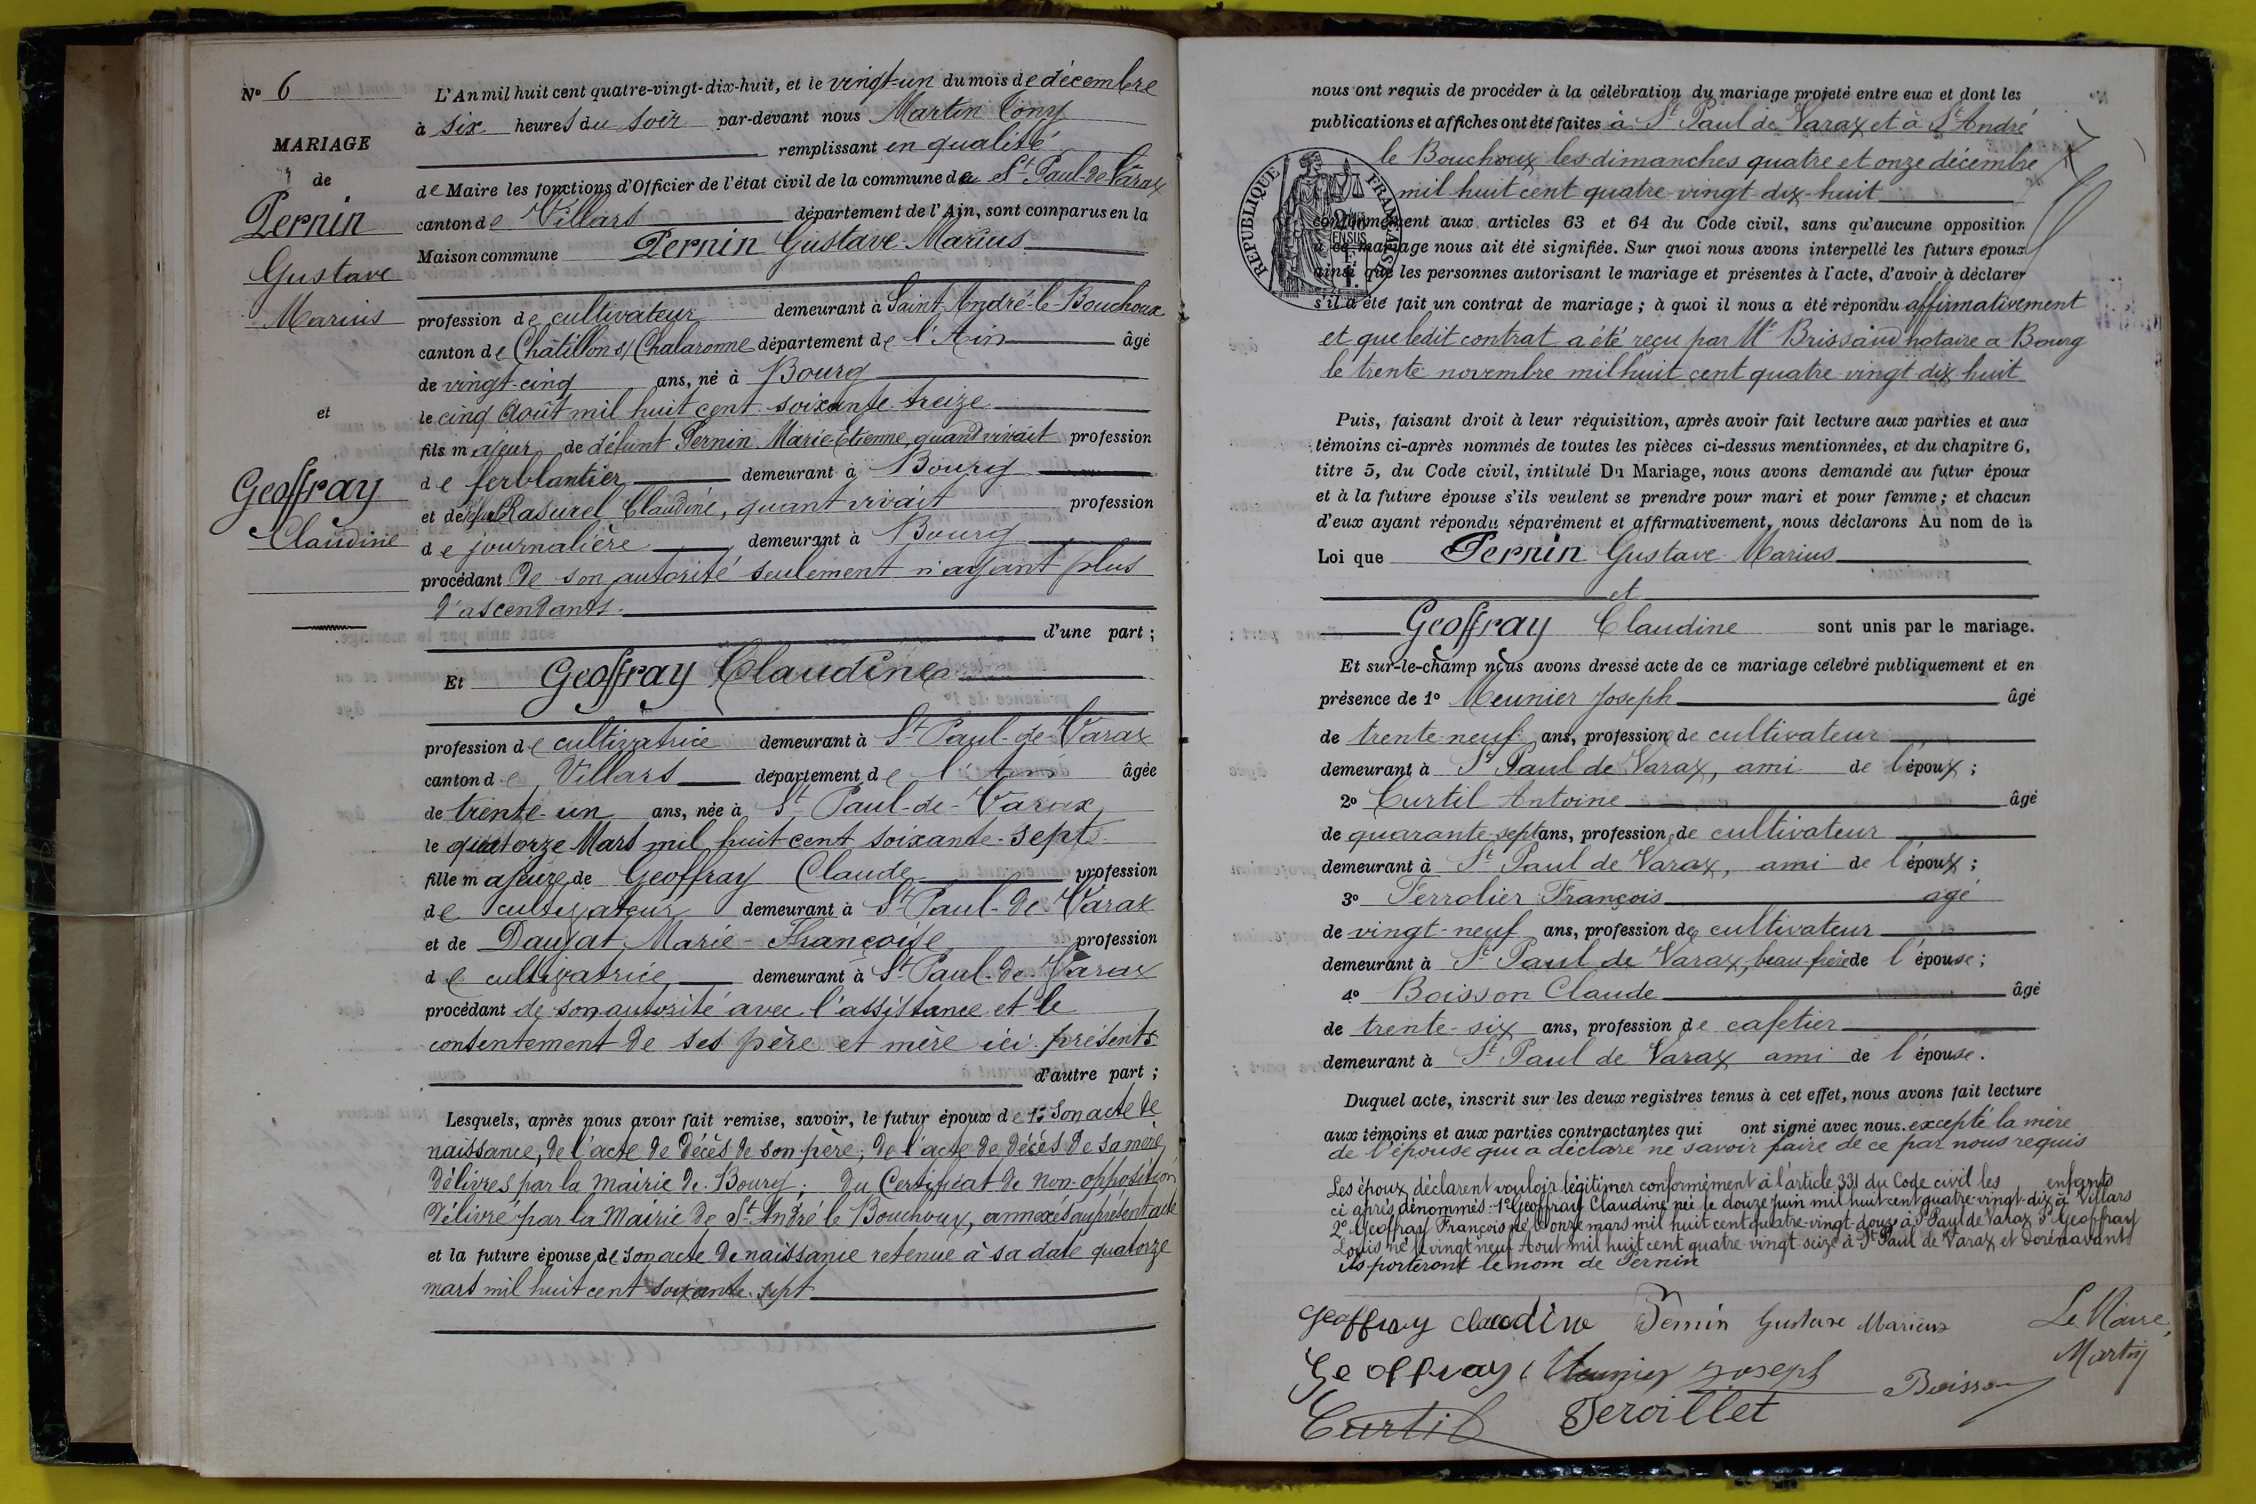 N° 6
MARIAGE
de
Pernin
Gustave
Marius
et
Geoffray
Claudine
L'An mil huit cent quatre-vingt-dix-huit, et le vingt-un du mois de décembre
à six heures du soir par-devant nous Martin Cony
remplissant en qualité
de Maire les fonctions d'Officier de l'état civil de la commune de St Paul-de-Varax
canton de Villars département de l'Ain, sont comparus en la
Maison commune Pernin Gustave Marius
profession de cultivateur demeurant à Saint André-le-Bouchoux
canton de Châtillon s/ Chalaronne département de l'Ain âgé
de vingt-cinq ans, né à Bourg
le cinq Août mil huit cent soixante-treize
fils majeur de défunt Pernin Marie-Etienne, quand vivait profession
de ferblantier demeurant à Bourg
et de Rasurel Claudine, quant vivait profession
de journalière demeurant à Bourg
procédant de son autorité seulement n'ayant plus
d'ascendants.
d'une part ;
Et Geoffray Claudine
profession de cultivatrice demeurant à St Paul-de-Varax
canton de Villars département de l'Ain âgée
de trente-un ans, née à St Paul-de-Varax
le quatorze Mars mil huit cent soixante-sept
fille majeure de Geoffray Claude profession
de cultivateur demeurant à St Paul-de-Varax
et de Daujat Marie-Françoise profession
de cultivatrice demeurant à St Paul-de-Varax
procédant de son autorité avec l'assistance et le
consentement de ses père et mère ici présents
d'autre part ;
Lesquels, après nous avoir fait remise, savoir, le futur époux de 1° Son acte de
naissance, de l'acte de décès de son père, de l'acte de décès de sa mère,
délivrés par la mairie de Bourg ; du Certificat de non-opposition
délivré par la Mairie de St André le Bouchoux, annexés au présent acte
et la future épouse de son acte de naissance retenue à sa date quatorze
mars mil huit cent soixante-sept
nous ont requis de procéder à la célébration du mariage projeté entre eux et dont les
publications et affiches ont été faites à St Paul de Varax et à St André
le Bouchoux les dimanches quatre et onze décembre
mil huit cent quatre-vingt dix-huit
RÉPUBLIQUE FRANÇAISE
conformément aux articles 63 et 64 du Code civil, sans qu'aucune opposition
à ce mariage nous ait été signifiée. Sur quoi nous avons interpellé les futurs époux
ainsi que les personnes autorisant le mariage et présentes à l'acte, d'avoir à déclarer
s'il a été fait un contrat de mariage ; à quoi il nous a été répondu affirmativement
et que ledit contrat a été reçu par Me Brissaud notaire a Bourg
le trente novembre mil huit cent quatre vingt dix huit
Puis, faisant droit à leur réquisition, après avoir fait lecture aux parties et aux
témoins ci-après nommés de toutes les pièces ci-dessus mentionnées, et du chapitre 6,
titre 5, du Code civil, intitulé Du Mariage, nous avons demandé au futur époux
et à la future épouse s'ils veulent se prendre pour mari et pour femme ; et chacun
d'eux ayant répondu séparément et affirmativement, nous déclarons Au nom de la
Loi que Pernin Gustave Marius
et
Geoffray Claudine sont unis par le mariage.
Et sur-le-champ nous avons dressé acte de ce mariage célébré publiquement et en
présence de 1° Meunier Joseph âgé
de trente-neuf ans, profession de cultivateur
demeurant à St Paul de Varax, ami de l'époux ;
2° Curtil Antoine âgé
de quarante-sept ans, profession de cultivateur
demeurant à St Paul de Varax, ami de l'époux ;
3° Ferrolier François agé
de vingt-neuf ans, profession de cultivateur
demeurant à St Paul de Varax, beau frère de l'épouse ;
4° Boisson Claude âgé
de trente-six ans, profession de cafetier
demeurant à St Paul de Varax ami de l'épouse.
Duquel acte, inscrit sur les deux registres tenus à cet effet, nous avons fait lecture
aux témoins et aux parties contractantes qui ont signé avec nous. excepté la mère
de l'épouse qui a déclaré ne savoir faire de ce par nous requis
Les époux déclarent vouloir légitimer conformément à l'article 331 du Code civil les enfants
ci après dénommés : 1° Geoffray Claudine née le douze Juin mil huit cent quatre-vingt-dix à Villars
2° Geoffray François né le onze mars mil huit cent quatre-vingt-douze à St Paul de Varax 3° Geoffray
Louis né le vingt neuf Aout mil huit cent quatre-vingt seize à St Paul de Varax et dorénavant
ils porteront le nom de Pernin
Geoffray Claudine Pernin Gustave Marius Le Maire,
Geoffray Meunier Joseph Boisson Martin
Curtil Feroillet